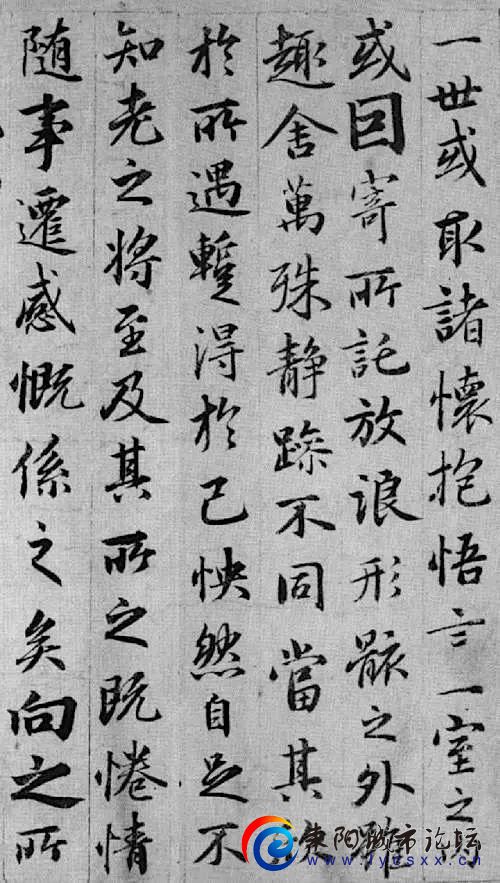 一世或取諸懷抱悟言一室之内
或因寄所託放浪形骸之外雖
趣舍萬殊静躁不同當其
於所遇蹔得於己怏然自足不
知老之將至及其所之既惓情
随事遷感慨係之矣向之所
阳城市论坛